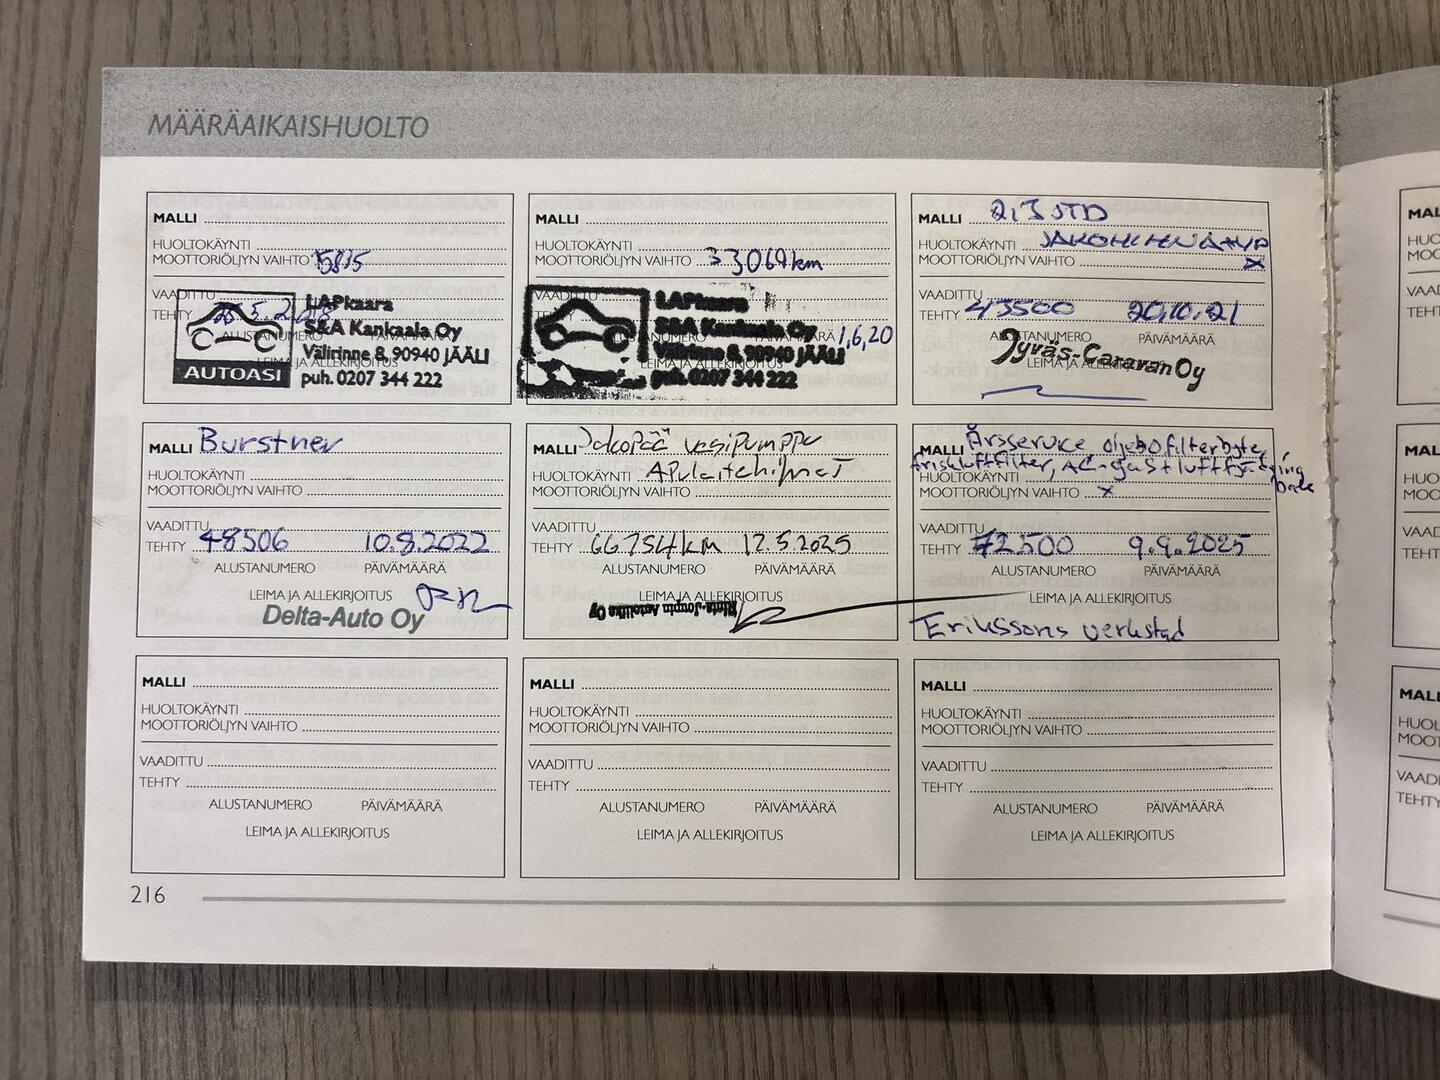 MÄÄRÄAIKAISHUOLTO
MALLI
HUOLTOKÄYNTI
MOOTTORIÖLJYN VAIHTO 15815
VAADITTU
TEHTY
ALUSTANUMERO
LEIMA JA ALLEKIRJOITUS
LAPkaara
S&A Kankaala Oy
Välirinne 8, 90940 JÄÄLI
AUTOASI puh. 0207 344 222
MALLI
HUOLTOKÄYNTI
MOOTTORIÖLJYN VAIHTO 33069km
VAADITTU
TEHTY
ALUSTANUMERO PÄIVÄMÄÄRÄ 1,6,20
LEIMA JA ALLEKIRJOITUS
LAPkaara
S&A Kankaala Oy
Välirinne 8, 90940 JÄÄLI
puh. 0207 344 222
MALLI 2,3 JTD
HUOLTOKÄYNTI
MOOTTORIÖLJYN VAIHTO x
VAADITTU
TEHTY 43500 20,10,21
ALUSTANUMERO PÄIVÄMÄÄRÄ
LEIMA JA ALLEKIRJOITUS
Jyväs-Caravan Oy
MALLI Burstner
HUOLTOKÄYNTI
MOOTTORIÖLJYN VAIHTO
VAADITTU
TEHTY 48506 10.8.2022
ALUSTANUMERO PÄIVÄMÄÄRÄ
LEIMA JA ALLEKIRJOITUS
Delta-Auto Oy
MALLI Jakopää vesipumppu
HUOLTOKÄYNTI Apulaitehihnat
MOOTTORIÖLJYN VAIHTO
VAADITTU
TEHTY 66754km 12.5.2025
ALUSTANUMERO PÄIVÄMÄÄRÄ
LEIMA JA ALLEKIRJOITUS
Rinta-Joupin Autoliike Oy
MALLI Årsservice oljebofilterbyte,
friskluftfilter, AC-gas+luftfjädring
HUOLTOKÄYNTI bak
MOOTTORIÖLJYN VAIHTO x
VAADITTU
TEHTY 72500 9.9.2025
ALUSTANUMERO PÄIVÄMÄÄRÄ
LEIMA JA ALLEKIRJOITUS
Erikssons verkstad
MALLI
HUOLTOKÄYNTI
MOOTTORIÖLJYN VAIHTO
VAADITTU
TEHTY
ALUSTANUMERO PÄIVÄMÄÄRÄ
LEIMA JA ALLEKIRJOITUS
MALLI
HUOLTOKÄYNTI
MOOTTORIÖLJYN VAIHTO
VAADITTU
TEHTY
ALUSTANUMERO PÄIVÄMÄÄRÄ
LEIMA JA ALLEKIRJOITUS
MALLI
HUOLTOKÄYNTI
MOOTTORIÖLJYN VAIHTO
VAADITTU
TEHTY
ALUSTANUMERO PÄIVÄMÄÄRÄ
LEIMA JA ALLEKIRJOITUS
216